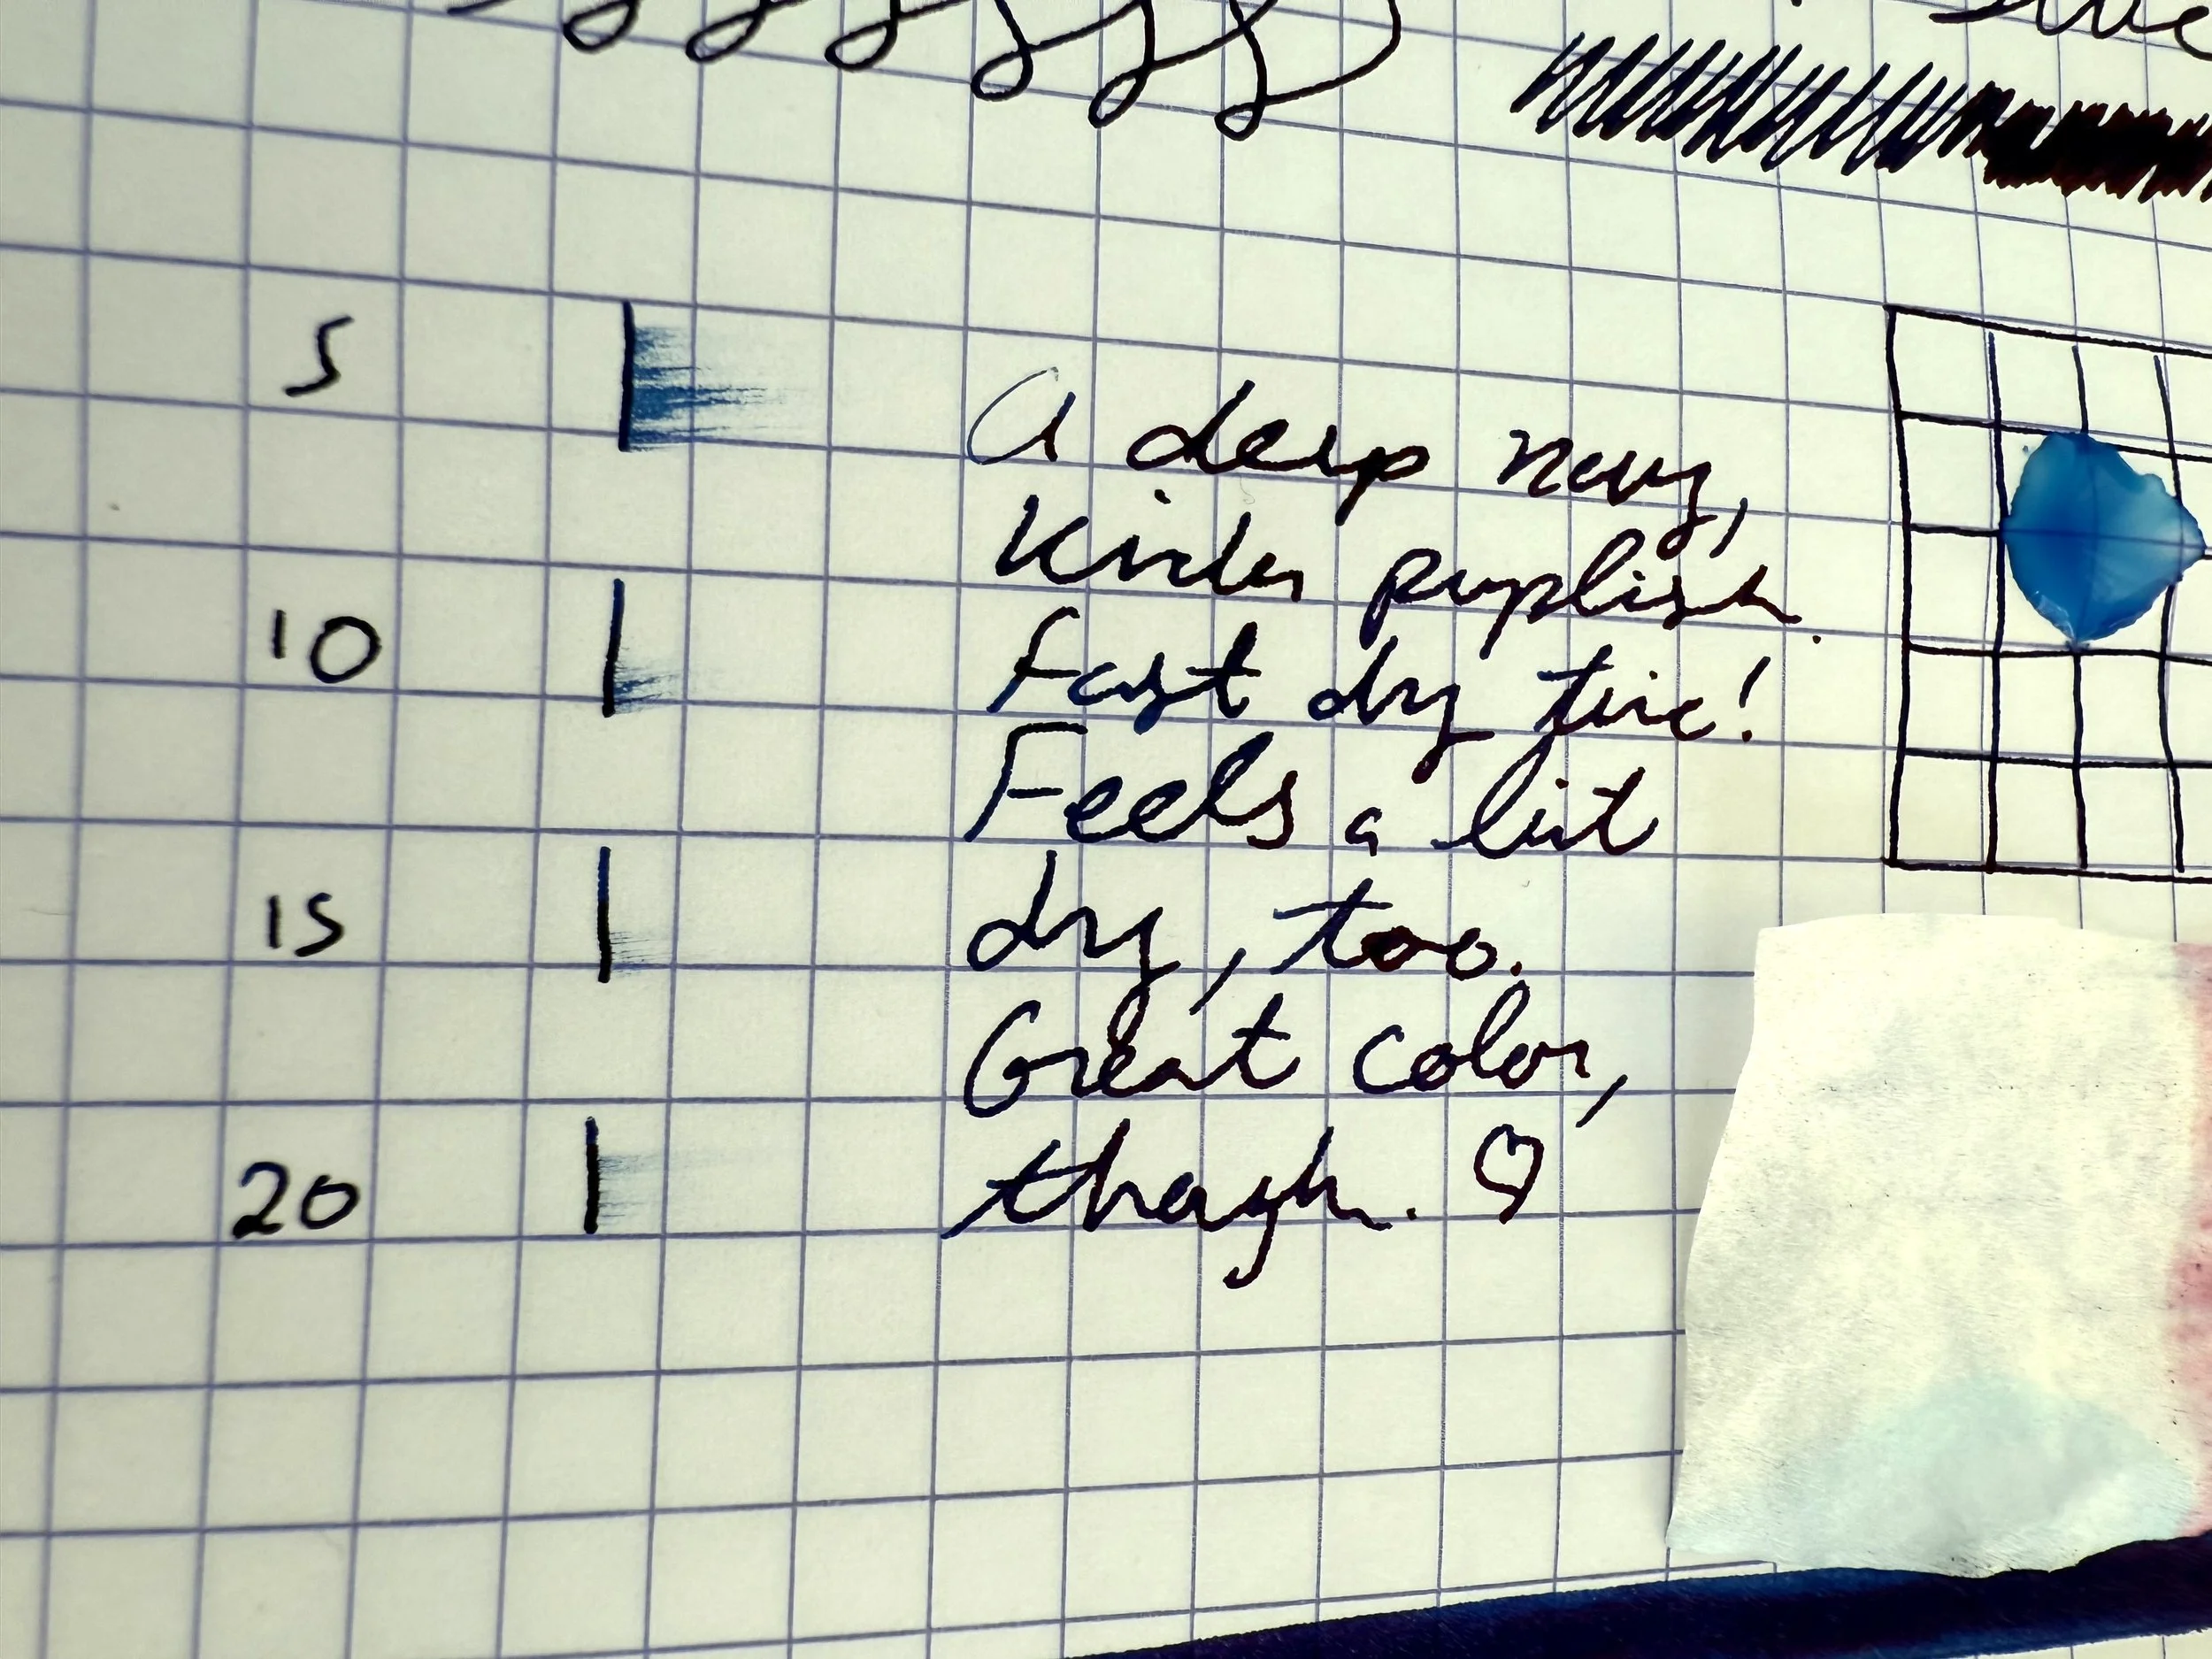 5
10
15
20
A deep navy,
Kinda purplish.
Fast dry time!
Feels a bit
dry, too.
Great color,
though. ♡